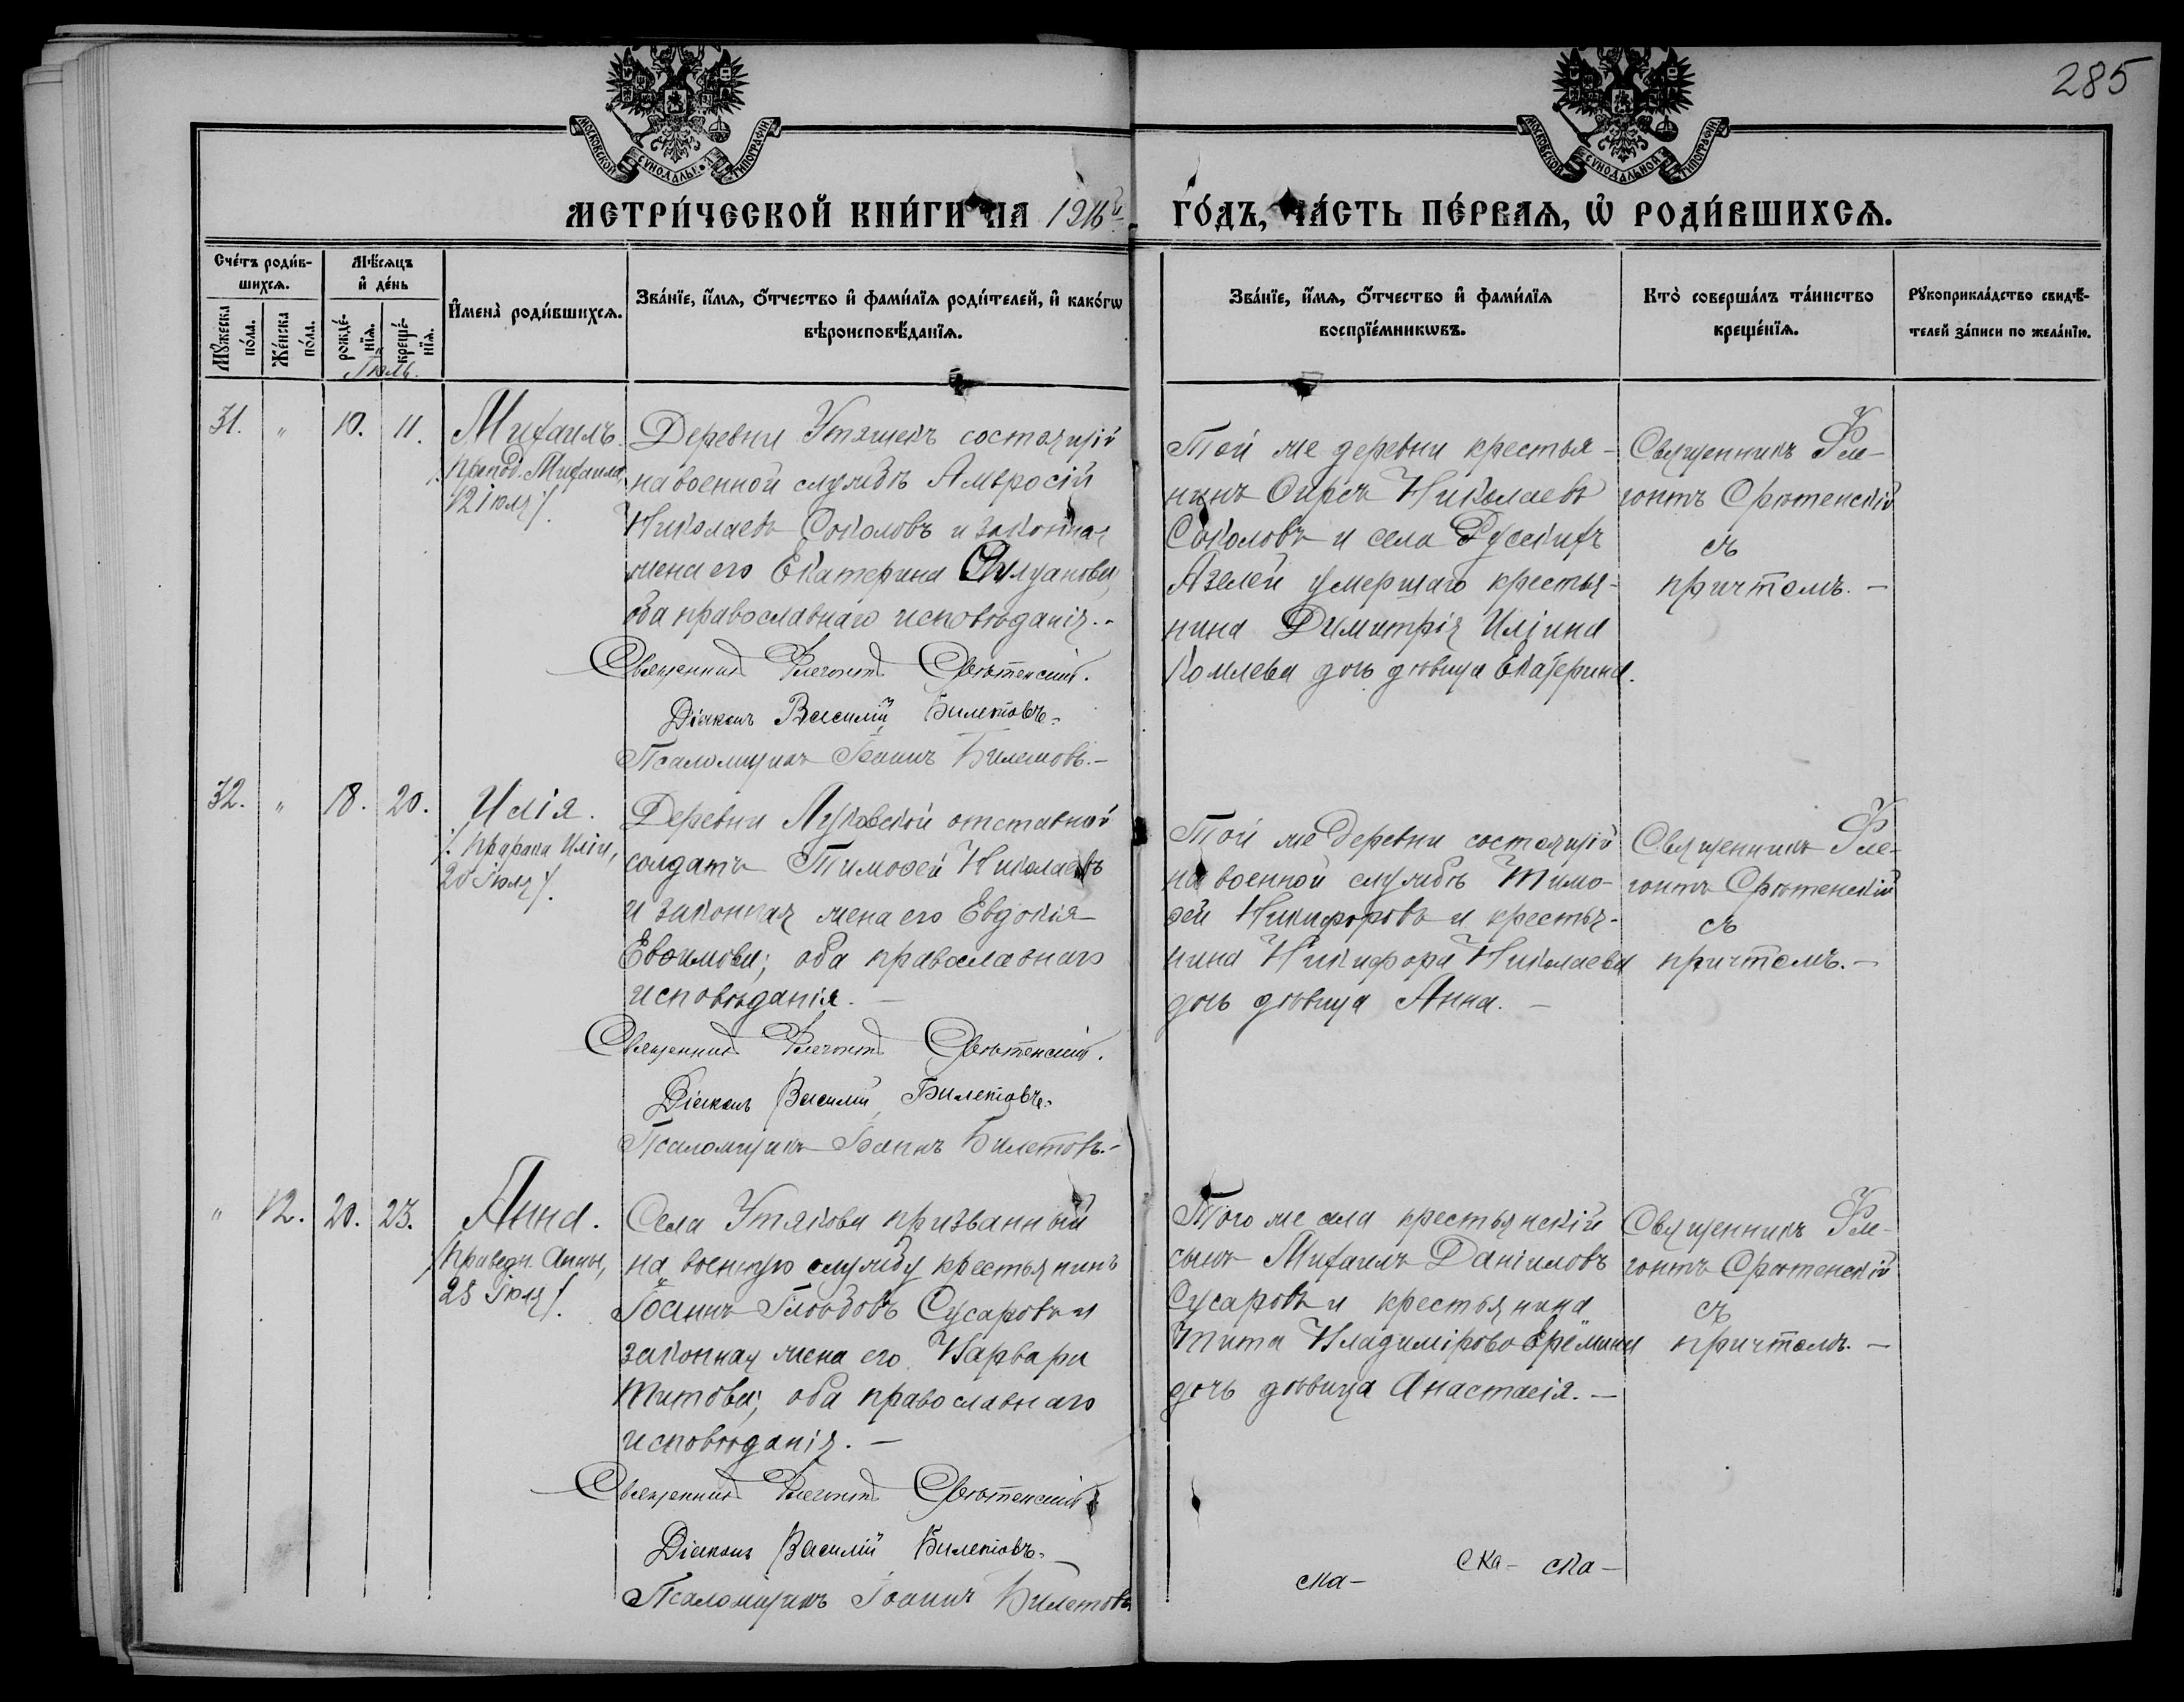 285
МОСКОВСКОЙ СѴНОДАЛЬНОЙ ТИПОГРАФІИ
МОСКОВСКОЙ СѴНОДАЛЬНОЙ ТИПОГРАФІИ
МЕТРИ́ЧЕСКОЙ КНИ́ГИ НА 1916й
ГО́ДЪ, ЧА́СТЬ ПЕ́РВАЯ, Ѡ҆ РОДИ́ВШИХСЯ.
Сче́тъ роди́в-
шихся.
Мꙋ́жеска по́ла.
Же́нска по́ла.
Мѣ́сяцъ
и҆ де́нь
рожде́нїя.
креще́нїя.
Іюль.
И҆мена̀ роди́вшихся.
Зва́нїе, и҆́мя, ѻ҆́тчество и҆ фами́лїя роди́телей, и҆ како́гѡ
вѣроисповѣ́данїя.
Зва́нїе, и҆́мя, ѻ҆́тчество и҆ фами́лїя
воспрїе́мникѡвъ.
Кто̀ соверша́лъ та́инство
креще́нїя.
Рꙋкоприкла́дство свидѣ́-
телей за́писи по жела́нїю.
31. " 10. 11.
Михаилъ.
/: препод. Михаила,
12 Іюля :/.
Деревни Утяшекъ состоящій
на военной службѣ Амвросій
Николаевъ Соколовъ и законная
жена его Екатерина
оба православнаго исповѣданія.-
Священникъ Флегонтъ Срѣтенскій.
Діаконъ Василій Билетовъ.
Псаломщикъ Іоаннъ Билетовъ.-
Той же деревни крестья-
нинъ Ѳирсъ Николаевъ
Соколовъ и села Русскихъ
Азелей умершаго крестья-
нина Димитрія Иліина
Комлева дочь дѣвица Екатерина.
Священникъ Фле-
гонтъ Срѣтенскій
съ
причтомъ.-
32. " 18. 20.
Илія.
/: Пророка Иліи,
20 Іюля :/.
Деревни Луковской отставной
солдатъ Тимоѳей Николаевъ
и законная жена его Евдокія
Евѳимова; оба православнаго
исповѣданія.-
Священникъ Флегонтъ Срѣтенскій.
Діаконъ Василій Билетовъ.
Псаломщикъ Іоаннъ Билетовъ.-
Той же деревни состоящій
на военной службѣ Тимо-
ѳей Никифоровъ и крестья-
нина Никифора Николаева
дочь дѣвица Анна.-
Священникъ Фле-
гонтъ Срѣтенскій
съ
причтомъ.-
" 12. 20. 23.
Анна.
/: праведн. Анны,
25 Іюля :/.
Села Утякова призванный
на военную службу крестьянинъ
Іоаннъ Глѣбовъ Сусаровъ и
законная жена его Варвара
Титова; оба православнаго
исповѣданія.-
Священникъ Флегонтъ Срѣтенскій.
Діаконъ Василій Билетовъ.
Псаломщикъ Іоаннъ Билетовъ
Того же села крестьянскій
сынъ Михаилъ Даніиловъ
Сусаровъ и крестьянина
Тита Владимірова Ерёмина
дочь дѣвица Анастасія.-
Священникъ Фле-
гонтъ Срѣтенскій
съ
причтомъ.-
ска- ска- ска-